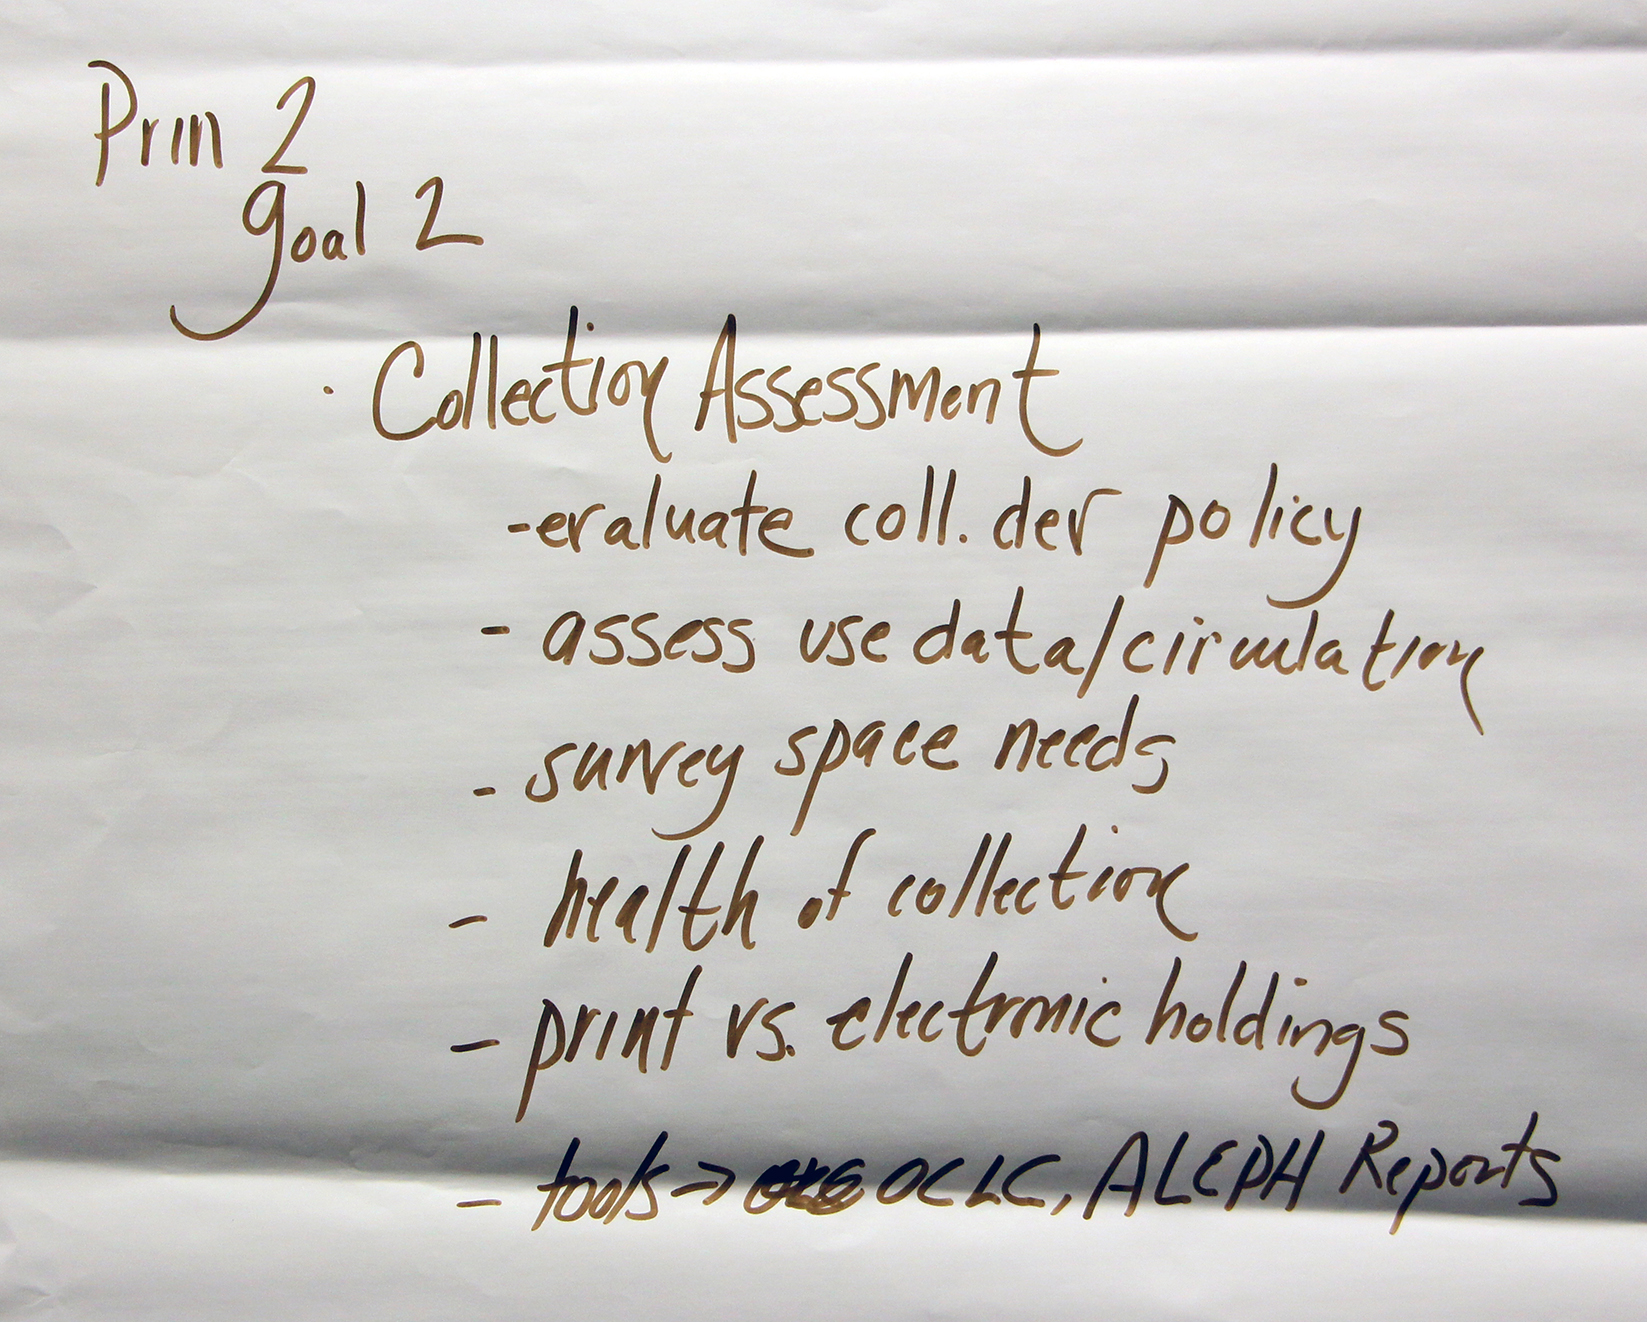 Prin 2
goal 2
· Collection Assessment
- evaluate coll. dev policy
- assess use data/circulation
- survey space needs
- health of collection
- print vs. electronic holdings
- tools -> OCLC, ALEPH Reports